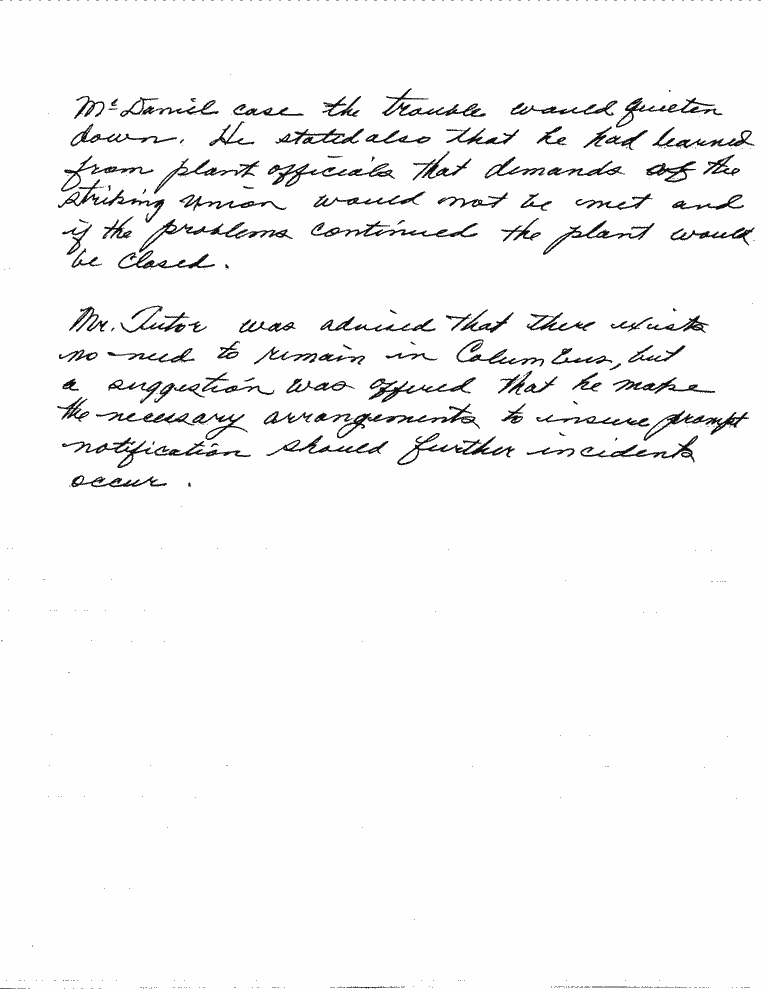 McDaniel case the trouble would quieten
down. He stated also that he had learned
from plant officials that demands of the
striking Union would not be met and
if the problems continued the plant would
be closed.
Mr. Tutor was advised that there exists
no need to remain in Columbus, but
a suggestion was offered that he make
the necessary arrangements to insure prompt
notification should further incidents
occur.